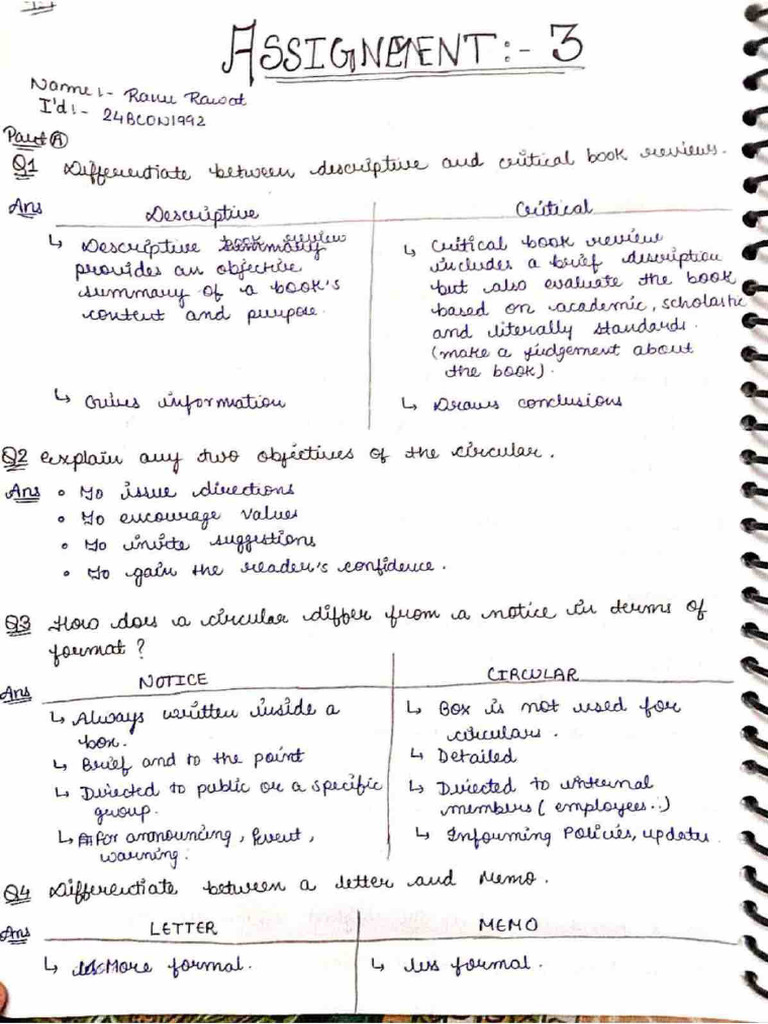 ASSIGNMENT:- 3
Name:- Ranu Rawat
I'd:- 24BCON1992
Part A
Q1 Differentiate between descriptive and critical book reviews.
Ans Descriptive
↳ Descriptive book review
provides an objective
summary of a book's
content and purpose.
↳ Gives information
Critical
↳ Critical book review
includes a brief description
but also evaluate the book
based on academic, scholastic
and literally standards.
(make a judgement about
the book).
↳ Draws conclusions
Q2 explain any two objectives of the circular.
Ans • To issue directions
• To encourage values
• To invite suggestions
• To gain the reader's confidence.
Q3 How does a circular differ from a notice in terms of
format?
Ans NOTICE
↳ Always written inside a
box.
↳ Brief and to the point
↳ Directed to public or a specific
group.
↳ For announcing, event,
warning.
CIRCULAR
↳ Box is not used for
circulars.
↳ Detailed
↳ Directed to internal
members (employees..)
↳ Informing Policies, updates.
Q4 Differentiate between a letter and Memo.
Ans LETTER
↳ More formal.
MEMO
↳ les formal.